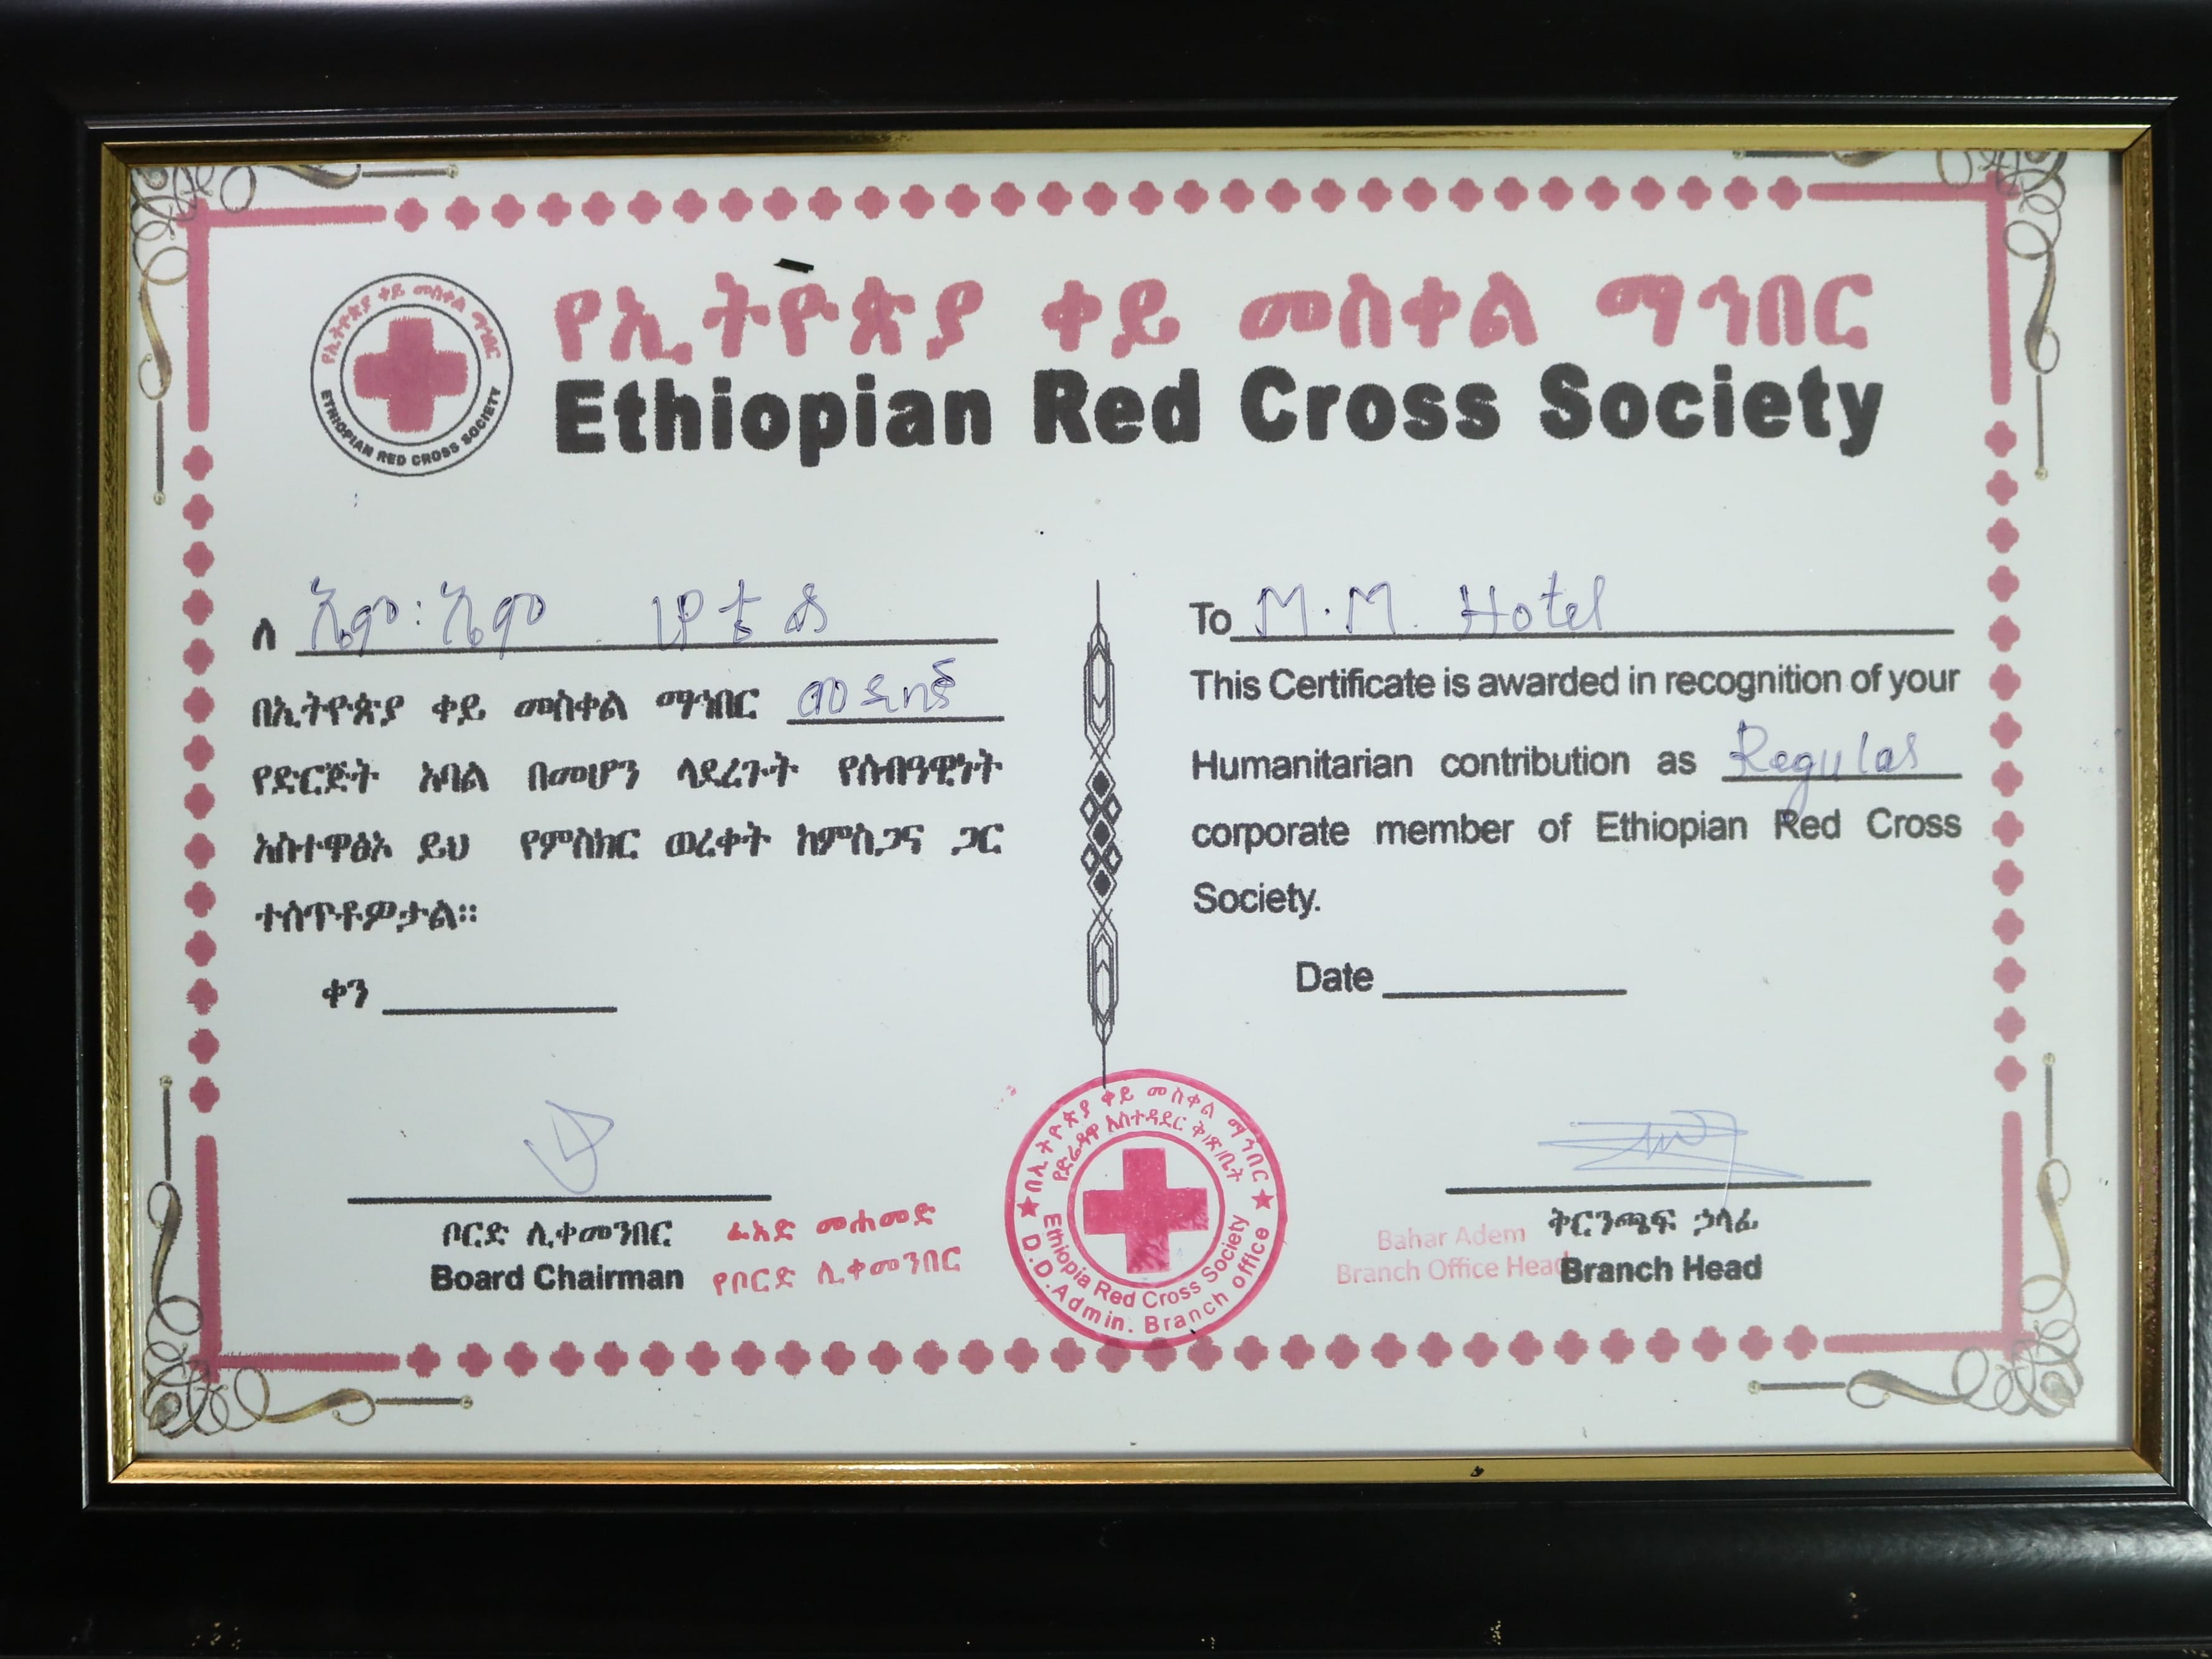 የኢትዮጵያ ቀይ መስቀል ማኅበር
ETHIOPIAN RED CROSS SOCIETY
የኢትዮጵያ ቀይ መስቀል ማኅበር
Ethiopian Red Cross Society
ለ ኤም:ኤም ሆቴል
በኢትዮጵያ ቀይ መስቀል ማኅበር መደበኛ
የድርጅት አባል በመሆን ላደረጉት የሰብዓዊነት
አስተዋፅኦ ይህ የምስክር ወረቀት ከምስጋና ጋር
ተሰጥቶዎታል።
ቀን
To M.M. Hotel
This Certificate is awarded in recognition of your
Humanitarian contribution as Regular
corporate member of Ethiopian Red Cross
Society.
Date
ቦርድ ሊቀመንበር
Board Chairman
ፈአድ መሐመድ
የቦርድ ሊቀመንበር
በኢትዮጵያ ቀይ መስቀል ማኅበር
የድሬዳዋ አስተዳደር ቅ/ጽ/ቤት
Ethiopia Red Cross Society
D.D.Admin. Branch office
Bahar Adem
Branch Office Head
ቅርንጫፍ ኃላፊ
Branch Head